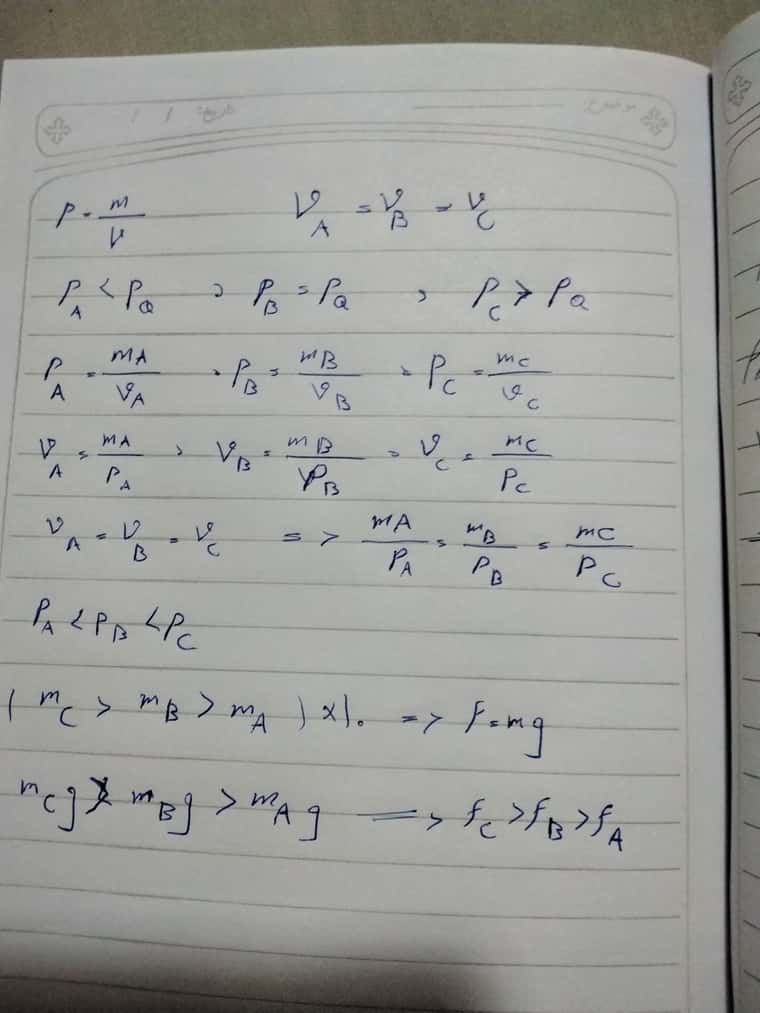 موضوع: تاریخ: / /
P = m/V V_A = V_B = V_C
P_A < P_Q , P_B = P_Q , P_C > P_Q
P_A = mA/V_A , P_B = mB/V_B , P_C = mC/V_C
V_A = mA/P_A , V_B = mB/P_B , V_C = mC/P_C
V_A = V_B = V_C => mA/P_A = m_B/P_B = mC/P_C
P_A < P_B < P_C
( m_C > m_B > m_A ) x1. => F = mg
m_C g > m_B g > m_A g => f_C > f_B > f_A